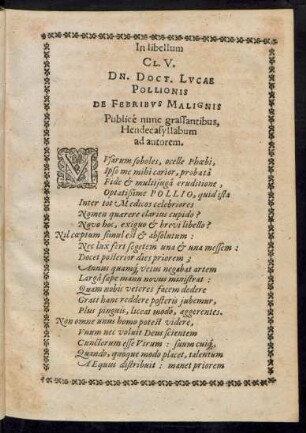 In libellum
CL. V.
DN. DOCT. LVCAE
POLLIONIS
DE FEBRIBVS MALIGNIS
Publicè nunc grassantibus,
Hendecasyllabum
ad autorem.
MVsarum soboles, ocelle Phœbi,
Ipso me mihi carior, probatâ
Fide & multijugâ eruditione,
Optatissime POLLIO, quid ista
Inter tot Medicos celebriores
Nomen quærere clarius cupido?
Nuvo hoc, exiguo & brevi libello?
Nil cœptum simul est & absolutum:
Nec lux fert segetem una & una messem:
Docet posterior dies priorem;
Annus quamq; vetus negabat artem
Largâ sæpe manu novus ministrat:
Quam nobis veteres facem dedere
Grati hanc reddere posteris jubemur,
Plus pinguis, liceat modò, aggerentes.
Non omne unus homo potest videre,
Vnum nec voluit Deus scientem
Cunctorum esse Virum: suum cuiq;
Quando, quoque modo placet, talentum
Æquus distribuit: manet priorem